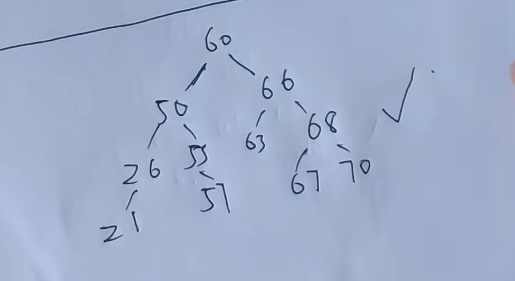 60
50 66
26 55 63 68
21 57 67 70